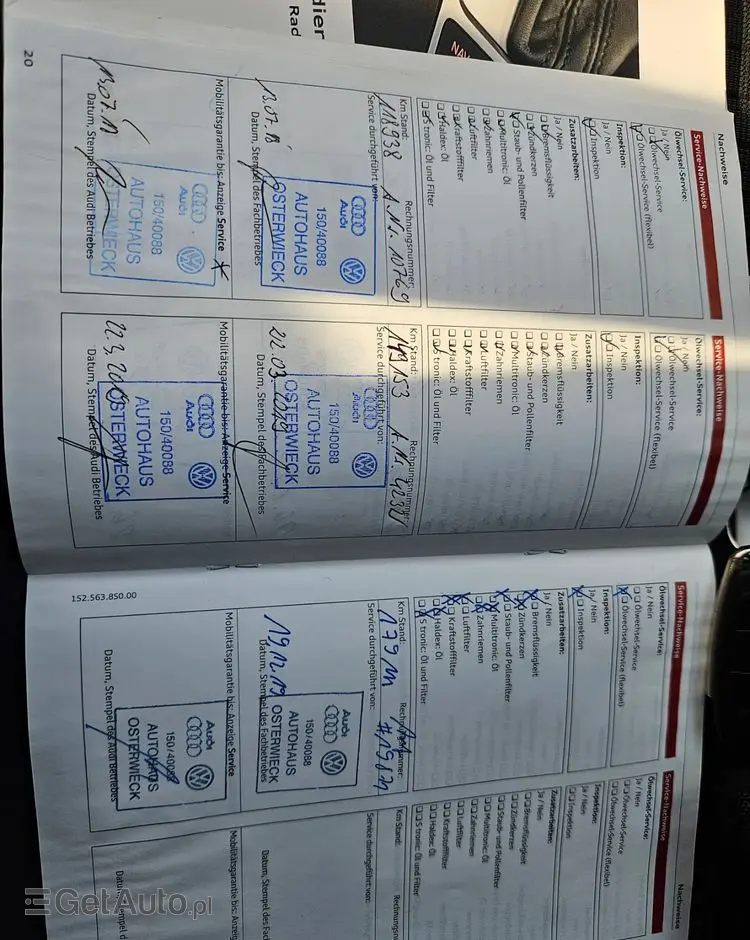 dier
Rad
NAV
20
Nachweise
Service-Nachweise
Ölwechsel-Service:
Ja / Nein
Ölwechsel-Service
Ölwechsel-Service (flexibel)
Inspektion:
Ja / Nein
Inspektion
Zusatzarbeiten:
Ja / Nein
Bremsflüssigkeit
Zündkerzen
Staub- und Pollenfilter
Multitronic: Öl
Zahnriemen
Luftfilter
Kraftstofffilter
Haldex: Öl
S tronic: Öl und Filter
Km Stand: Rechnungsnummer:
118938 A.Nr. 10769
Service durchgeführt von:
Audi
150/40088
AUTOHAUS
OSTERWIECK
13.07.18
Datum, Stempel des Fachbetriebes
Mobilitätsgarantie bis: Anzeige Service
Audi
150/40088
AUTOHAUS
OSTERWIECK
13.07.18
Datum, Stempel des Audi Betriebes
Service-Nachweise
Ölwechsel-Service:
Ja / Nein
Ölwechsel-Service
Ölwechsel-Service (flexibel)
Inspektion:
Ja / Nein
Inspektion
Zusatzarbeiten:
Ja / Nein
Bremsflüssigkeit
Zündkerzen
Staub- und Pollenfilter
Multitronic: Öl
Zahnriemen
Luftfilter
Kraftstofffilter
Haldex: Öl
S tronic: Öl und Filter
Km Stand: Rechnungsnummer:
149153
Service durchgeführt von:
Audi
150/40088
AUTOHAUS
OSTERWIECK
22.03.2019
Datum, Stempel des Fachbetriebes
Mobilitätsgarantie bis: Anzeige Service
150/40088
AUTOHAUS
OSTERWIECK
22.3.2019
Datum, Stempel des Audi Betriebes
Service-Nachweise
Ölwechsel-Service:
Ja / Nein
Ölwechsel-Service
Ölwechsel-Service (flexibel)
Inspektion:
Ja / Nein
Inspektion
Zusatzarbeiten:
Ja / Nein
Bremsflüssigkeit
Zündkerzen
Staub- und Pollenfilter
Multitronic: Öl
Zahnriemen
Luftfilter
Kraftstofffilter
Haldex: Öl
S tronic: Öl und Filter
Km Stand: Rechnungsnummer:
Service durchgeführt von:
Audi
150/40088
AUTOHAUS
OSTERWIECK
19.12.19
Datum, Stempel des Fachbetriebes
Mobilitätsgarantie bis: Anzeige Service
Audi
150/40088
AUTOHAUS
OSTERWIECK
Datum, Stempel des Audi Betriebes
152.563.850.00
Nachweise
Service-Nachweise
Ölwechsel-Service:
Ja / Nein
Ölwechsel-Service
Ölwechsel-Service (flexibel)
Inspektion:
Ja / Nein
Inspektion
Zusatzarbeiten:
Ja / Nein
Bremsflüssigkeit
Zündkerzen
Staub- und Pollenfilter
Multitronic: Öl
Zahnriemen
Luftfilter
Kraftstofffilter
Haldex: Öl
S tronic: Öl und Filter
Km Stand: Rechnungsnum
Service durchgeführt von:
Datum, Stempel des Fa
Mobilitätsgarantie bis: Anzeige
Datum, Stempel d
GetAuto.pl